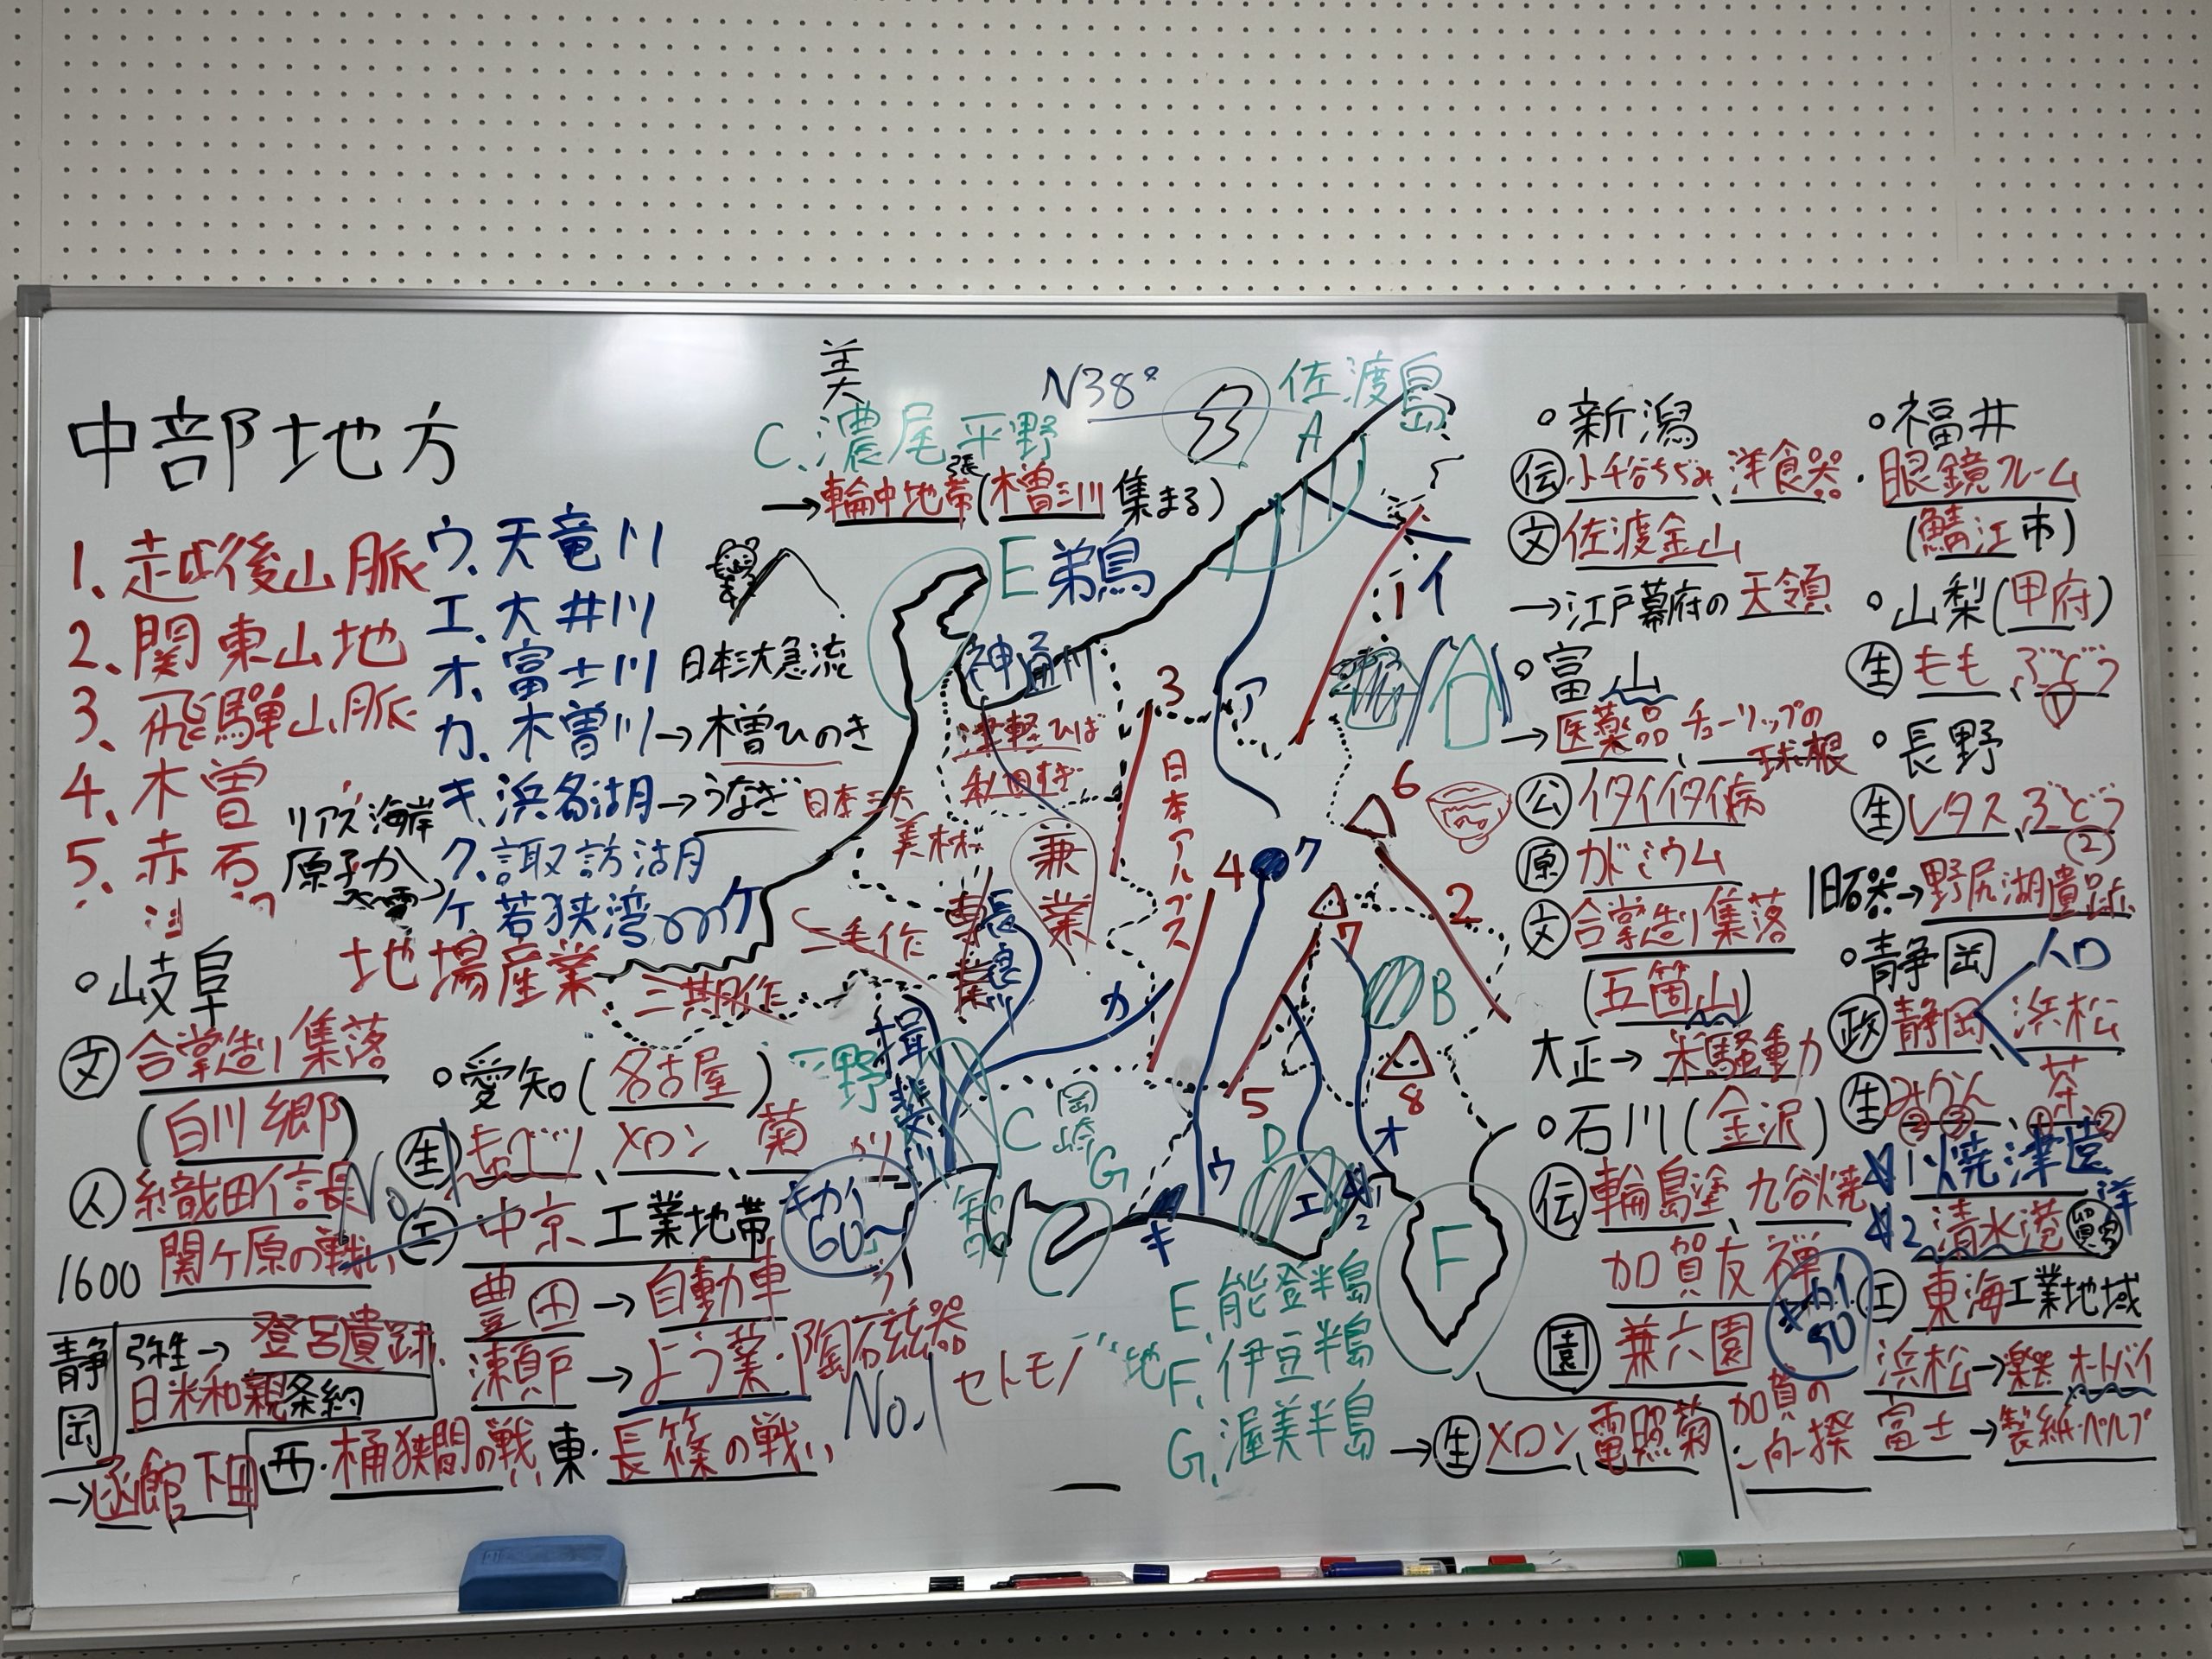 中部地方
1、越後山脈
2、関東山地
3、飛騨山脈
4、木曽
5、赤石
ウ、天竜川
エ、大井川
オ、富士川
カ、木曽川→木曽ひのき
キ、浜名湖→うなぎ
ク、諏訪湖
ケ、若狭湾
日本三大急流
リアス海岸
原子力
地場産業
美
C、濃尾平野
張
→輪中地帯(木曽三川集まる)
N38°
佐渡島
A
E
弟鳥
神通川
津軽ひば
秋田すぎ
日本三大
美林
兼業
専業
二毛作
二期作
日本アルプス
長良川
揖斐川
ア
イ
ウ
エ
オ
カ
キ
ク
ケ
1
2
3
4
5
6
7
8
B
C
D
F
G
岡崎
知多
E、能登半島
F、伊豆半島
G、渥美半島→生 メロン、電照菊
。岐阜
文 合掌造り集落
(白川郷)
人 織田信長
1600 関ヶ原の戦い
静岡
弥生→登呂遺跡
日米和親条約
→函館 下田
。愛知(名古屋)
生 キャベツ、メロン、菊
No.1
工 中京工業地帯
キカイ
60
豊田→自動車
瀬戸→よう業・陶磁器
No.1 セトモノ
西・桶狭間の戦い 東・長篠の戦い
。新潟
伝 小千谷ちぢみ、洋食器
文 佐渡金山
→江戸幕府の天領
。富山
→医薬品 チューリップの
球根
公 イタイイタイ病
原 カドミウム
文 合掌造り集落
(五箇山)
大正→米騒動
。石川(金沢)
伝 輪島塗、九谷焼
加賀友禅
園 兼六園
加賀の
一向一揆
。福井
・眼鏡フレーム
(鯖江市)
。山梨(甲府)
生 もも、ぶどう
①
。長野
生 レタス、ぶどう
②
旧石器→野尻湖遺跡
。静岡
人口
政 静岡、浜松
生 みかん、茶
焼津
遠洋
清水港
工 東海工業地域
キカイ
50
浜松→楽器 オートバイ
富士→製紙・パルプ